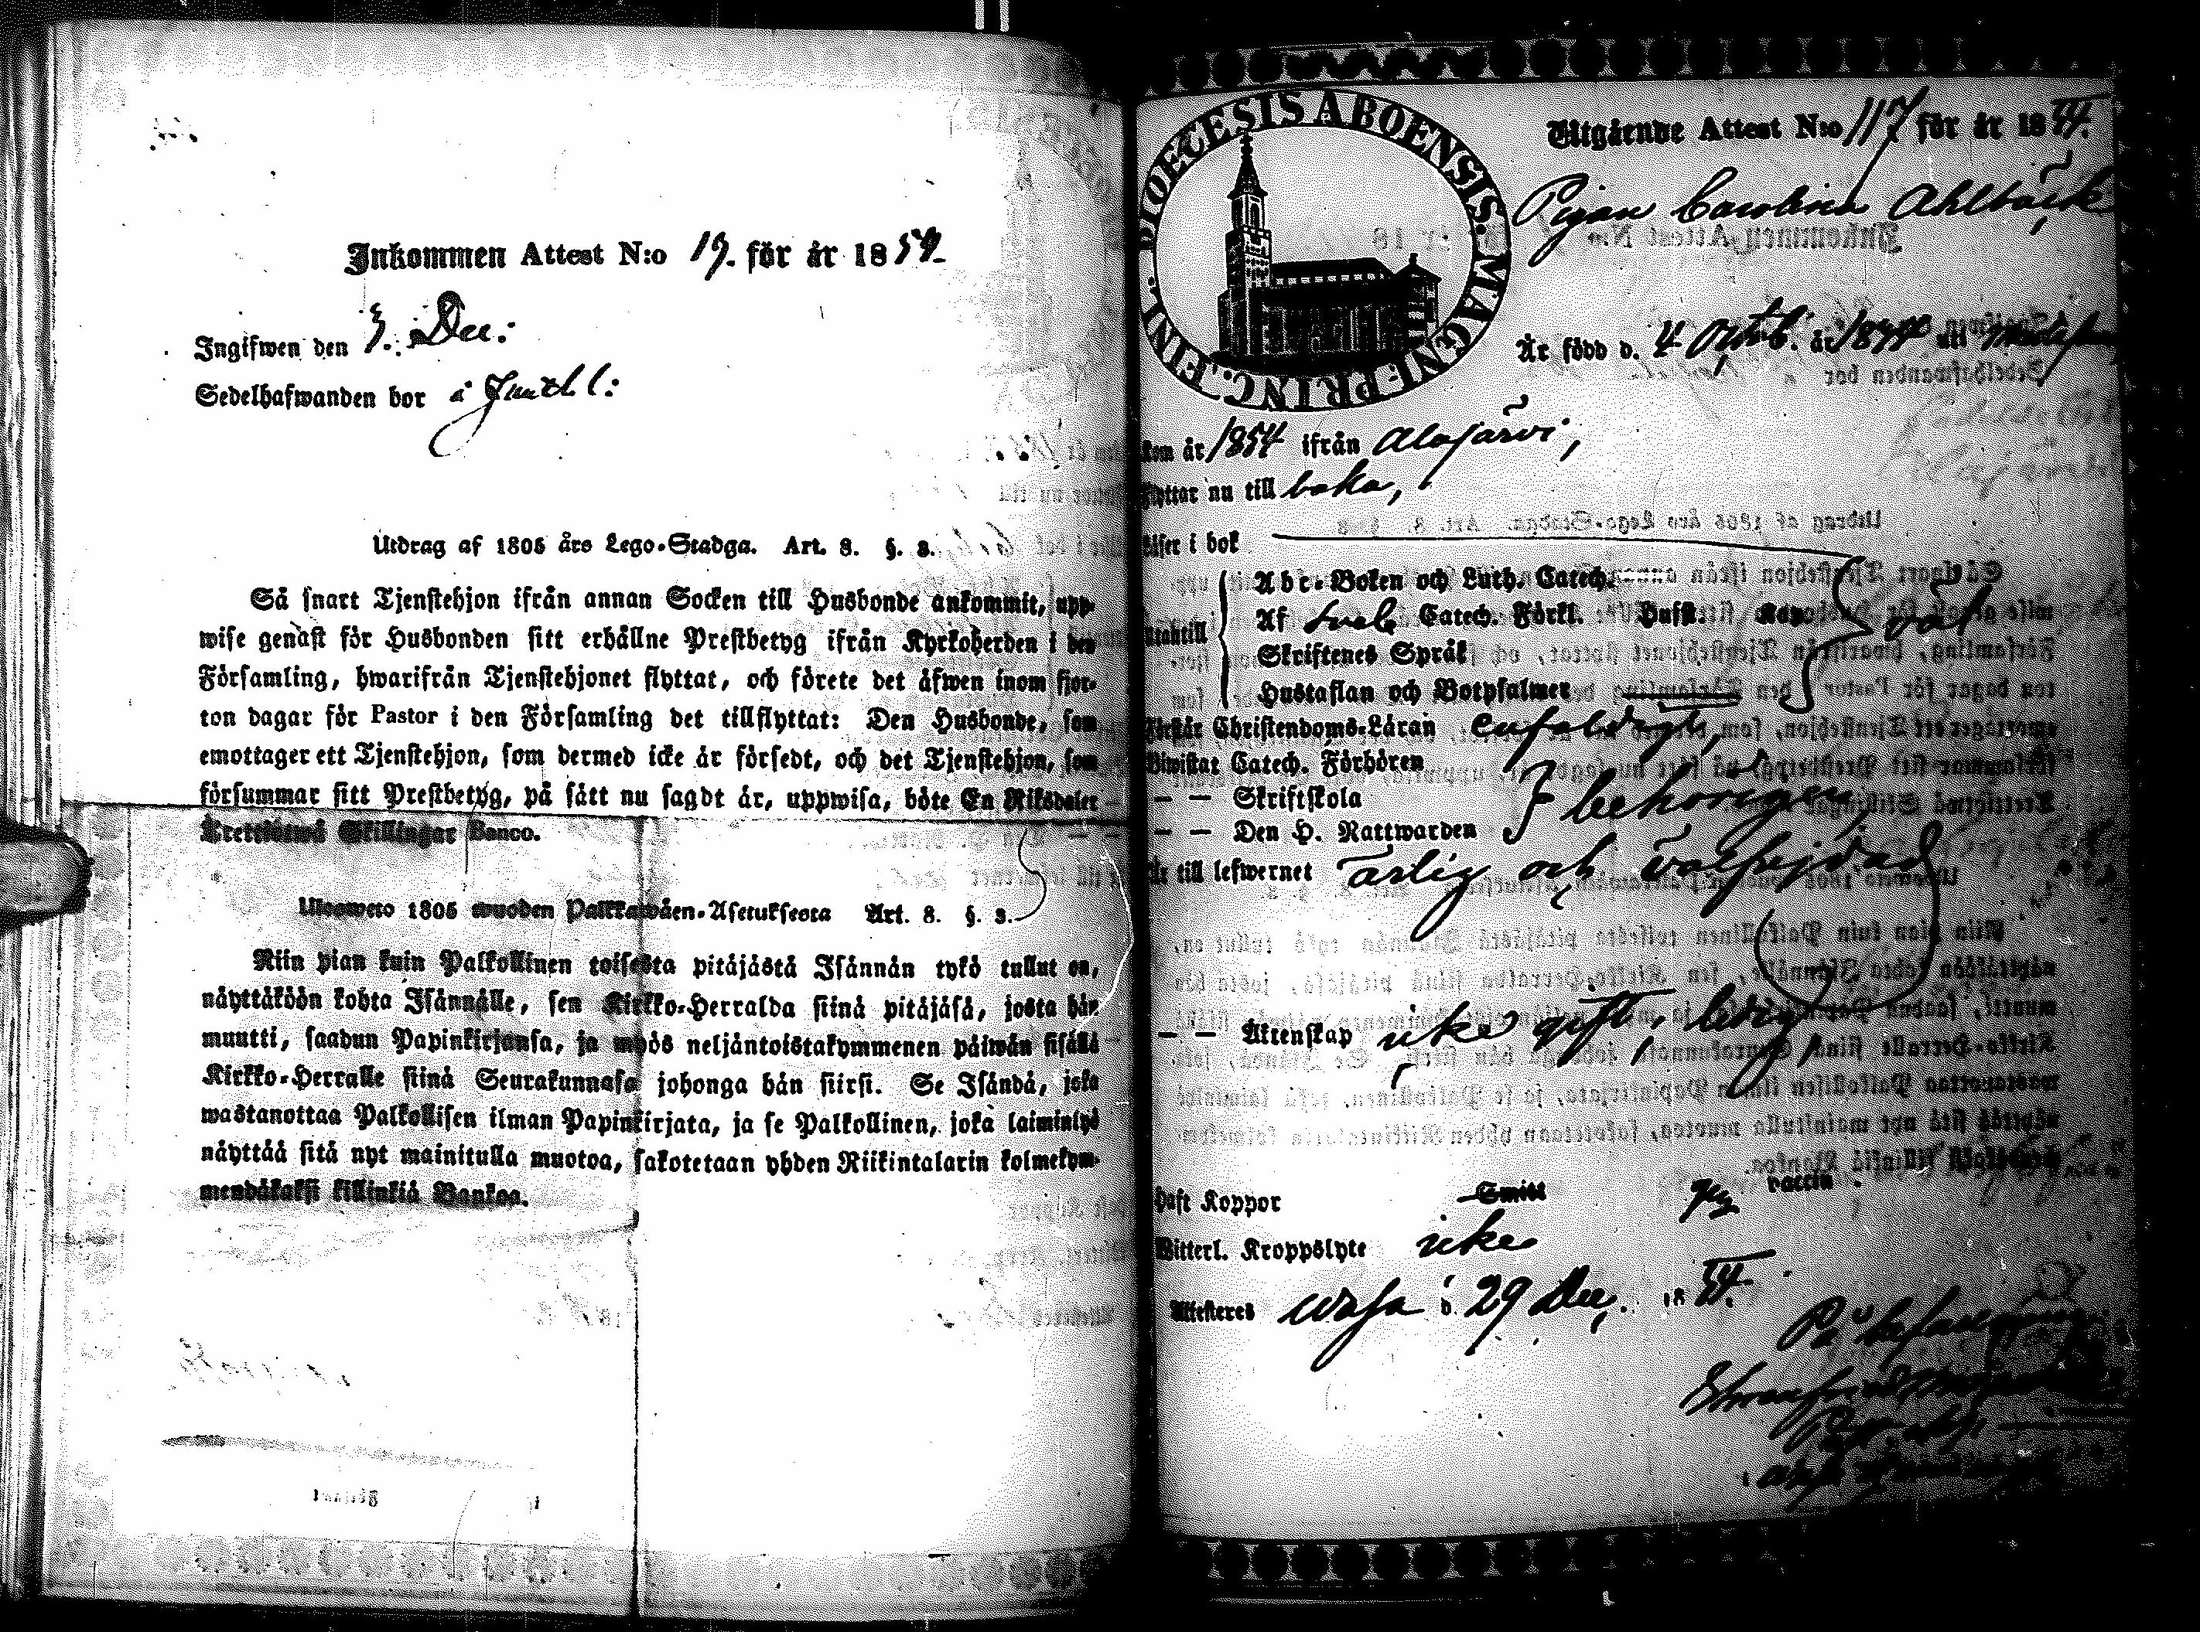 Inkommen Attest N:o 19. för år 1854.
Ingifwen den 3. Dec:
Sedelhafwanden bor å
Utdrag af 1805 års Lego-Stadga. Art. 8. §. 3.
Så snart Tjenstehjon ifrån annan Socken till Husbonde ankommit, upp-
wise genast för Husbonden sitt erhållne Prestbetyg ifrån Kyrkoherden i den
Församling, hwarifrån Tjenstehjonet flyttat, och förete det äfwen inom fjor-
ton dagar för Pastor i den Församling det tillflyttat: Den Husbonde, som
emottager ett Tjenstehjon, som dermed icke är försedt, och det Tjenstehjon, som
försummar sitt Prestbetyg, på sätt nu sagdt är, uppwisa, böte En Riksdaler
Trettiotwå Skillingar Banco.
Ulosweto 1805 wuoden Palkkawäen-Asetuksesta Art. 8. §. 3.
Niin pian kuin Palkollinen toisesta pitäjästä Isännän tykö tullut on,
näyttäköön kohta Isännälle, sen Kirkko-Herralda siinä pitäjäsä, josta hän
muutti, saadun Papinkirjansa, ja myös neljäntoistakymmenen päiwän sisällä
Kirkko-Herralle siinä Seurakunnasa johonga hän siirsi. Se Isändä, joka
wastanottaa Palkollisen ilman Papinkirjata, ja se Palkollinen, joka laiminlyö
näyttää sitä nyt mainitulla muotoa, sakotetaan yhden Riikintalarin kolmekym-
mendäkaksi killinkiä Bankoa.
DIOECESIS ABOENSIS. MAGNI PRINC. FINL.
Utgående Attest N:o 117 för år 1854.
Pigan Carolina Ahlbäck
Är född d. 4 Octob. år
kom år 1854 ifrån Alajärvi,
flyttar nu till baka,
läser i bok
Abc-Boken och Luth. Catech.
utantill Af Sveb Catech. Förkl. väl
Skriftenes Språk
Hustaflan och Botpsalmer
förstår Christendoms-Läran enfaldigt,
Biwistat Catech. Förhören
— — Skriftskola behörigen,
— — Den H. Nattwarden
är till lefwernet ärlig och välfrejdad
— — Äktenskap icke gift, ledig,
haft Koppor Smitt vaccin
Witterl. Kroppslyte icke
Attesteres Wasa d. 29 Dec. 1854.